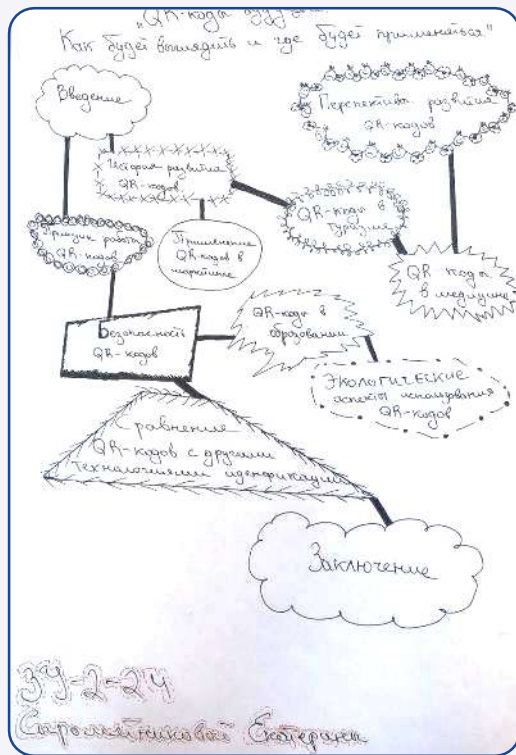 „QR-коды будущего:
Как будет выглядить и где будет применяться"
Введение
Перспективы развития
QR-кодов
История развития
QR-кодов
QR-коды в
туризме
Принцип работы
QR-кодов
Применение
QR-кодов в
маркетинге
QR коды
в медицине
Безопасность
QR-кодов
QR-коды в
образовании
Экологические
аспекты использования
QR-кодов
Сравнение
QR-кодов с другими
технологиями
Заключение
ЗУ-2-24
Сыромятниковой Екатерины